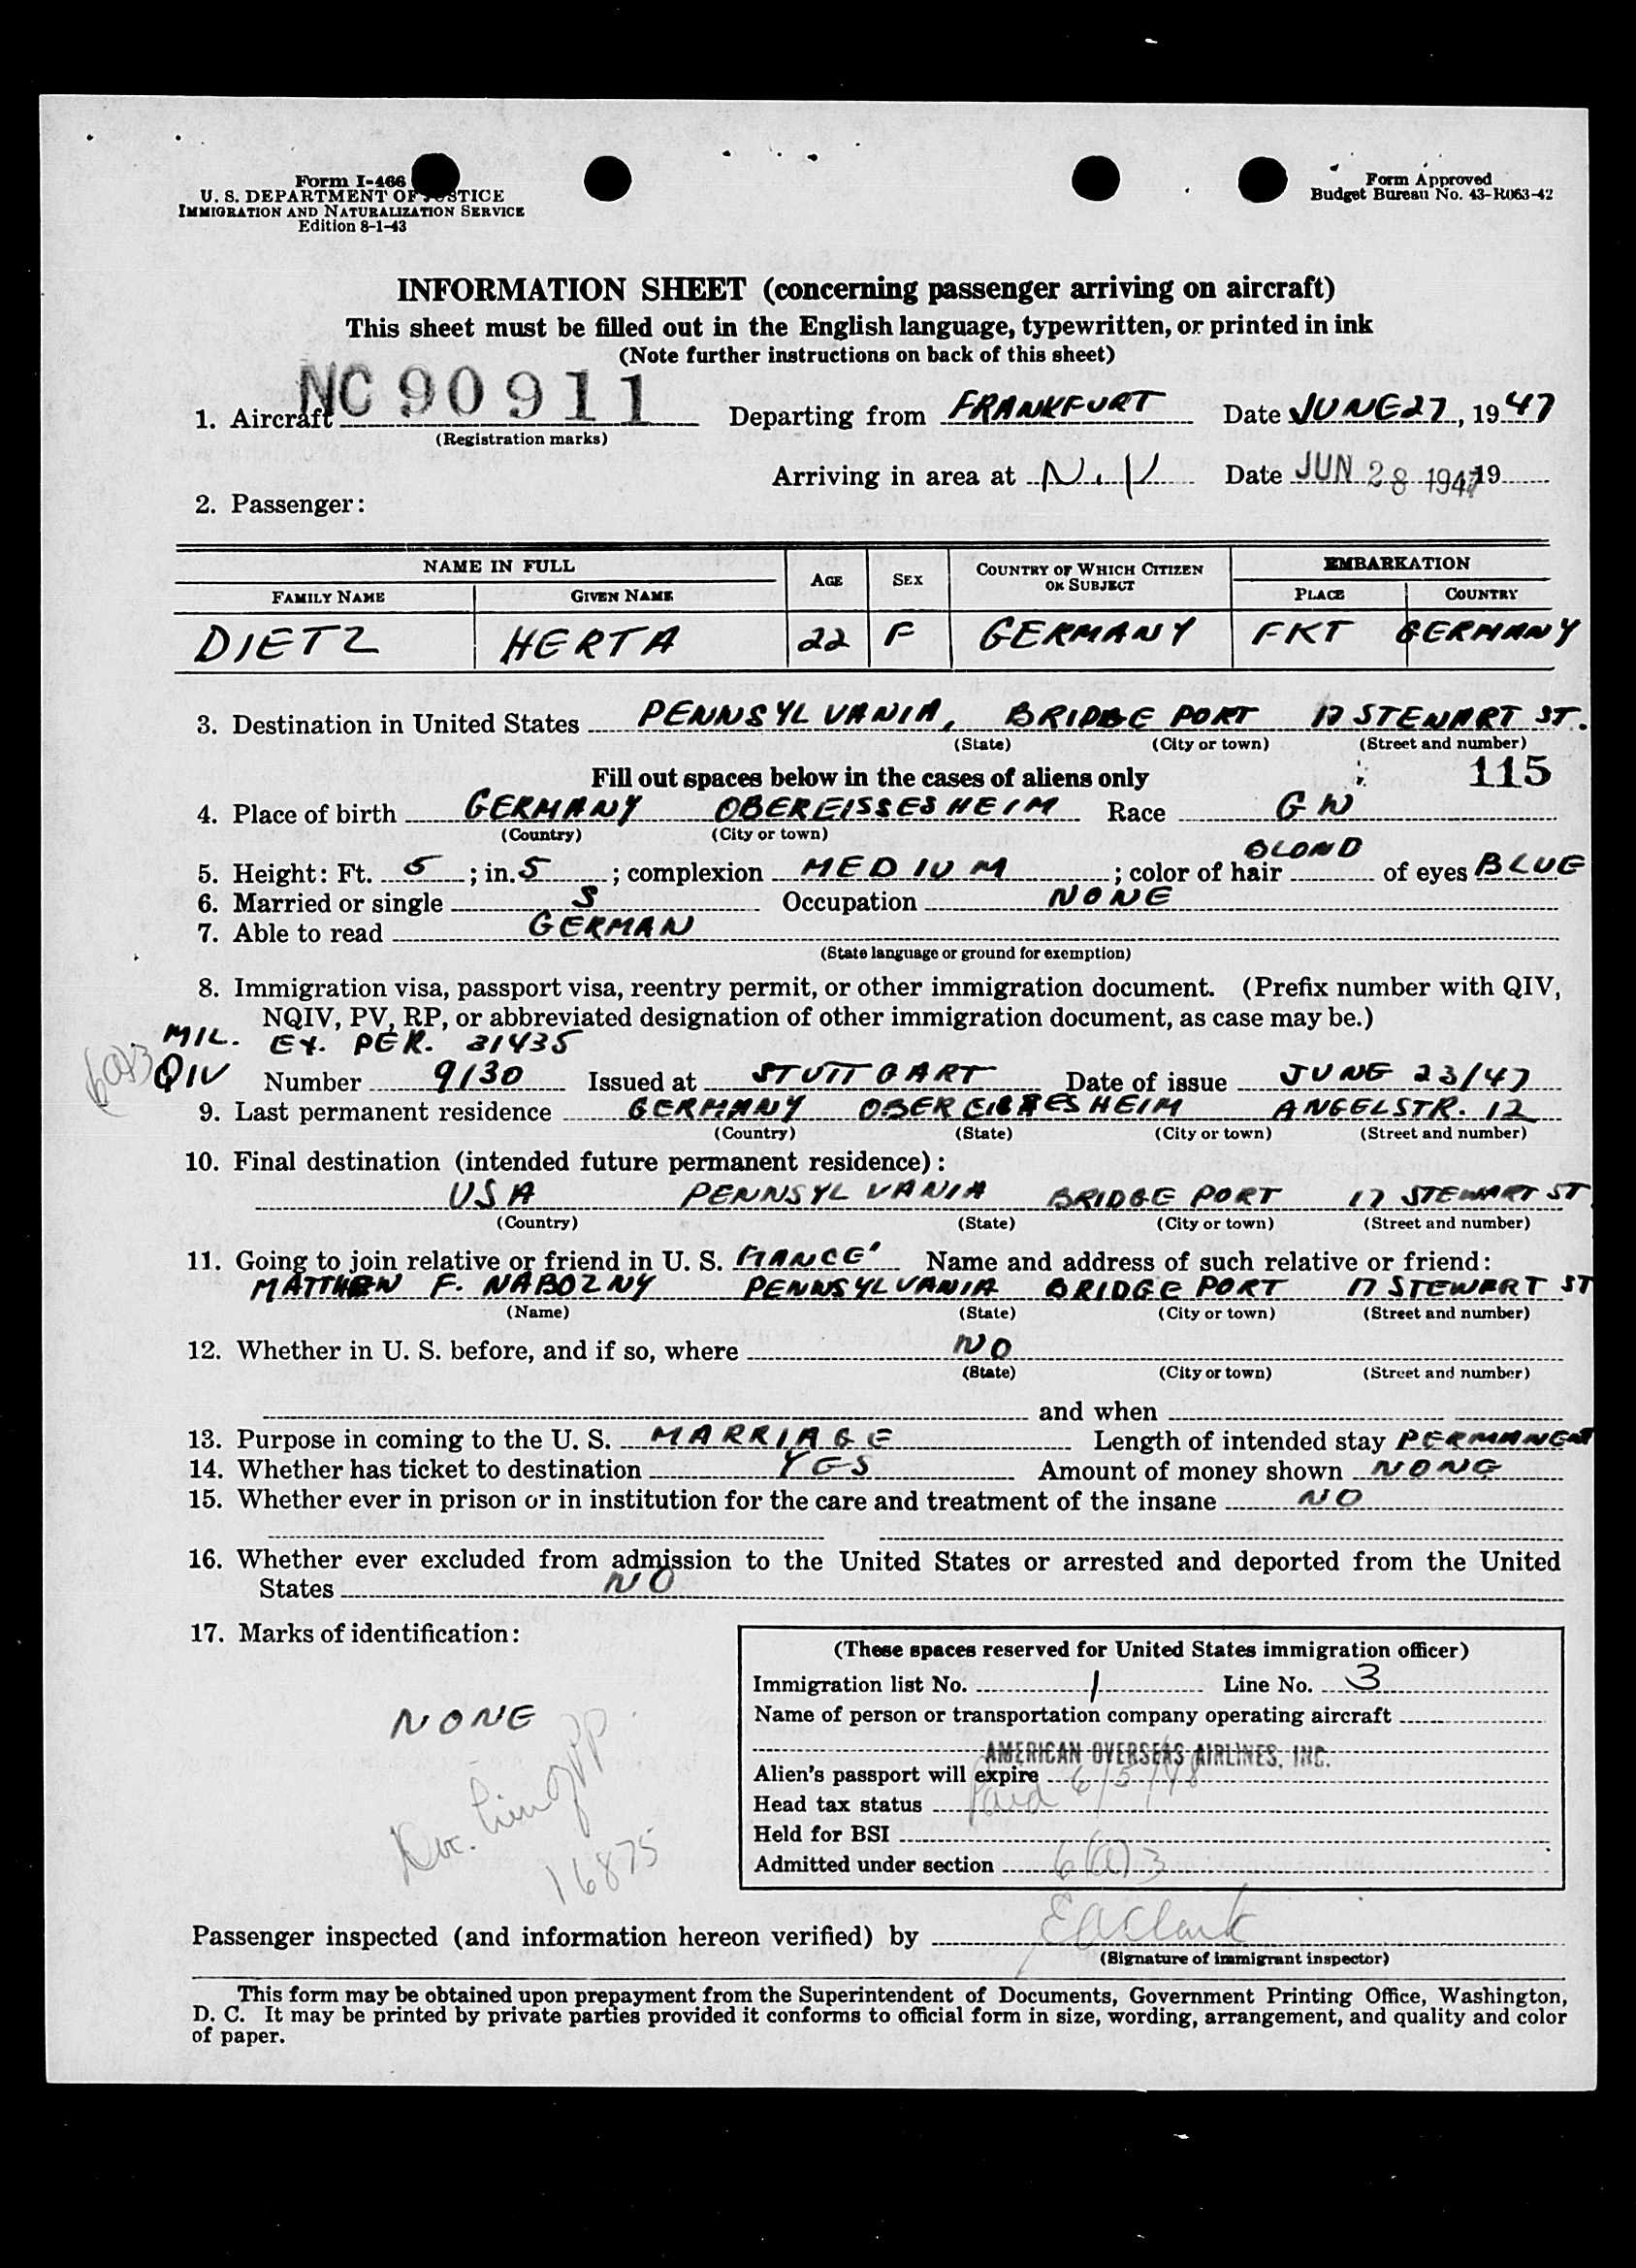 Form I-466
U. S. DEPARTMENT OF JUSTICE
IMMIGRATION AND NATURALIZATION SERVICE
Edition 8-1-43
Form Approved
Budget Bureau No. 43-R063-42
INFORMATION SHEET (concerning passenger arriving on aircraft)
This sheet must be filled out in the English language, typewritten, or printed in ink
(Note further instructions on back of this sheet)
1. Aircraft NC 90911 Departing from FRANKFURT Date JUNE 27, 1947
(Registration marks)
Arriving in area at N.Y. Date JUN 28 1947 19
2. Passenger:
NAME IN FULL AGE SEX COUNTRY OF WHICH CITIZEN OR SUBJECT EMBARKATION
FAMILY NAME GIVEN NAME PLACE COUNTRY
DIETZ HERTA 22 F GERMANY FKT GERMANY
3. Destination in United States PENNSYLVANIA, BRIDGE PORT 17 STEWART ST.
(State) (City or town) (Street and number)
Fill out spaces below in the cases of aliens only 115
4. Place of birth GERMANY OBEREISSESHEIM Race GW
(Country) (City or town)
5. Height: Ft. 5; in. 5; complexion MEDIUM; color of hair BLOND of eyes BLUE
6. Married or single S Occupation NONE
7. Able to read GERMAN
(State language or ground for exemption)
8. Immigration visa, passport visa, reentry permit, or other immigration document. (Prefix number with QIV,
NQIV, PV, RP, or abbreviated designation of other immigration document, as case may be.)
MIL. EX. PER. 31435
6(a)3 QIV Number 9130 Issued at STUTTGART Date of issue JUNE 23/47
9. Last permanent residence GERMANY OBEREISSESHEIM ANGELSTR. 12
(Country) (State) (City or town) (Street and number)
10. Final destination (intended future permanent residence):
USA PENNSYLVANIA BRIDGE PORT 17 STEWART ST
(Country) (State) (City or town) (Street and number)
11. Going to join relative or friend in U. S. FIANCE' Name and address of such relative or friend:
MATTHEW F. NABOZNY PENNSYLVANIA BRIDGE PORT 17 STEWART ST
(Name) (State) (City or town) (Street and number)
12. Whether in U. S. before, and if so, where NO
(State) (City or town) (Street and number)
and when
13. Purpose in coming to the U. S. MARRIAGE Length of intended stay PERMANENT
14. Whether has ticket to destination YES Amount of money shown NONE
15. Whether ever in prison or in institution for the care and treatment of the insane NO
16. Whether ever excluded from admission to the United States or arrested and deported from the United
States NO
17. Marks of identification:
NONE
16875
(These spaces reserved for United States immigration officer)
Immigration list No. 1 Line No. 3
Name of person or transportation company operating aircraft
AMERICAN OVERSEAS AIRLINES, INC.
Alien's passport will expire 6/5/48
Head tax status Paid
Held for BSI
Admitted under section 6(a)3
Passenger inspected (and information hereon verified) by EAClark
(Signature of immigrant inspector)
This form may be obtained upon prepayment from the Superintendent of Documents, Government Printing Office, Washington,
D. C. It may be printed by private parties provided it conforms to official form in size, wording, arrangement, and quality and color
of paper.